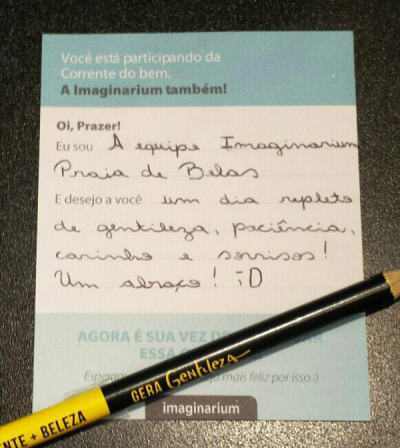 Você está participando da
Corrente do bem.
A Imaginarium também!
Oi, Prazer!
Eu sou A equipe Imaginarium
Praia de Belas
E desejo a você um dia repleto
de gentileza, paciência,
carinho e sorrisos!
Um abraço! ;D
AGORA É SUA VEZ
ESSA
mais feliz por isso :)
GERA Gentileza
NTE + BELEZA
imaginarium